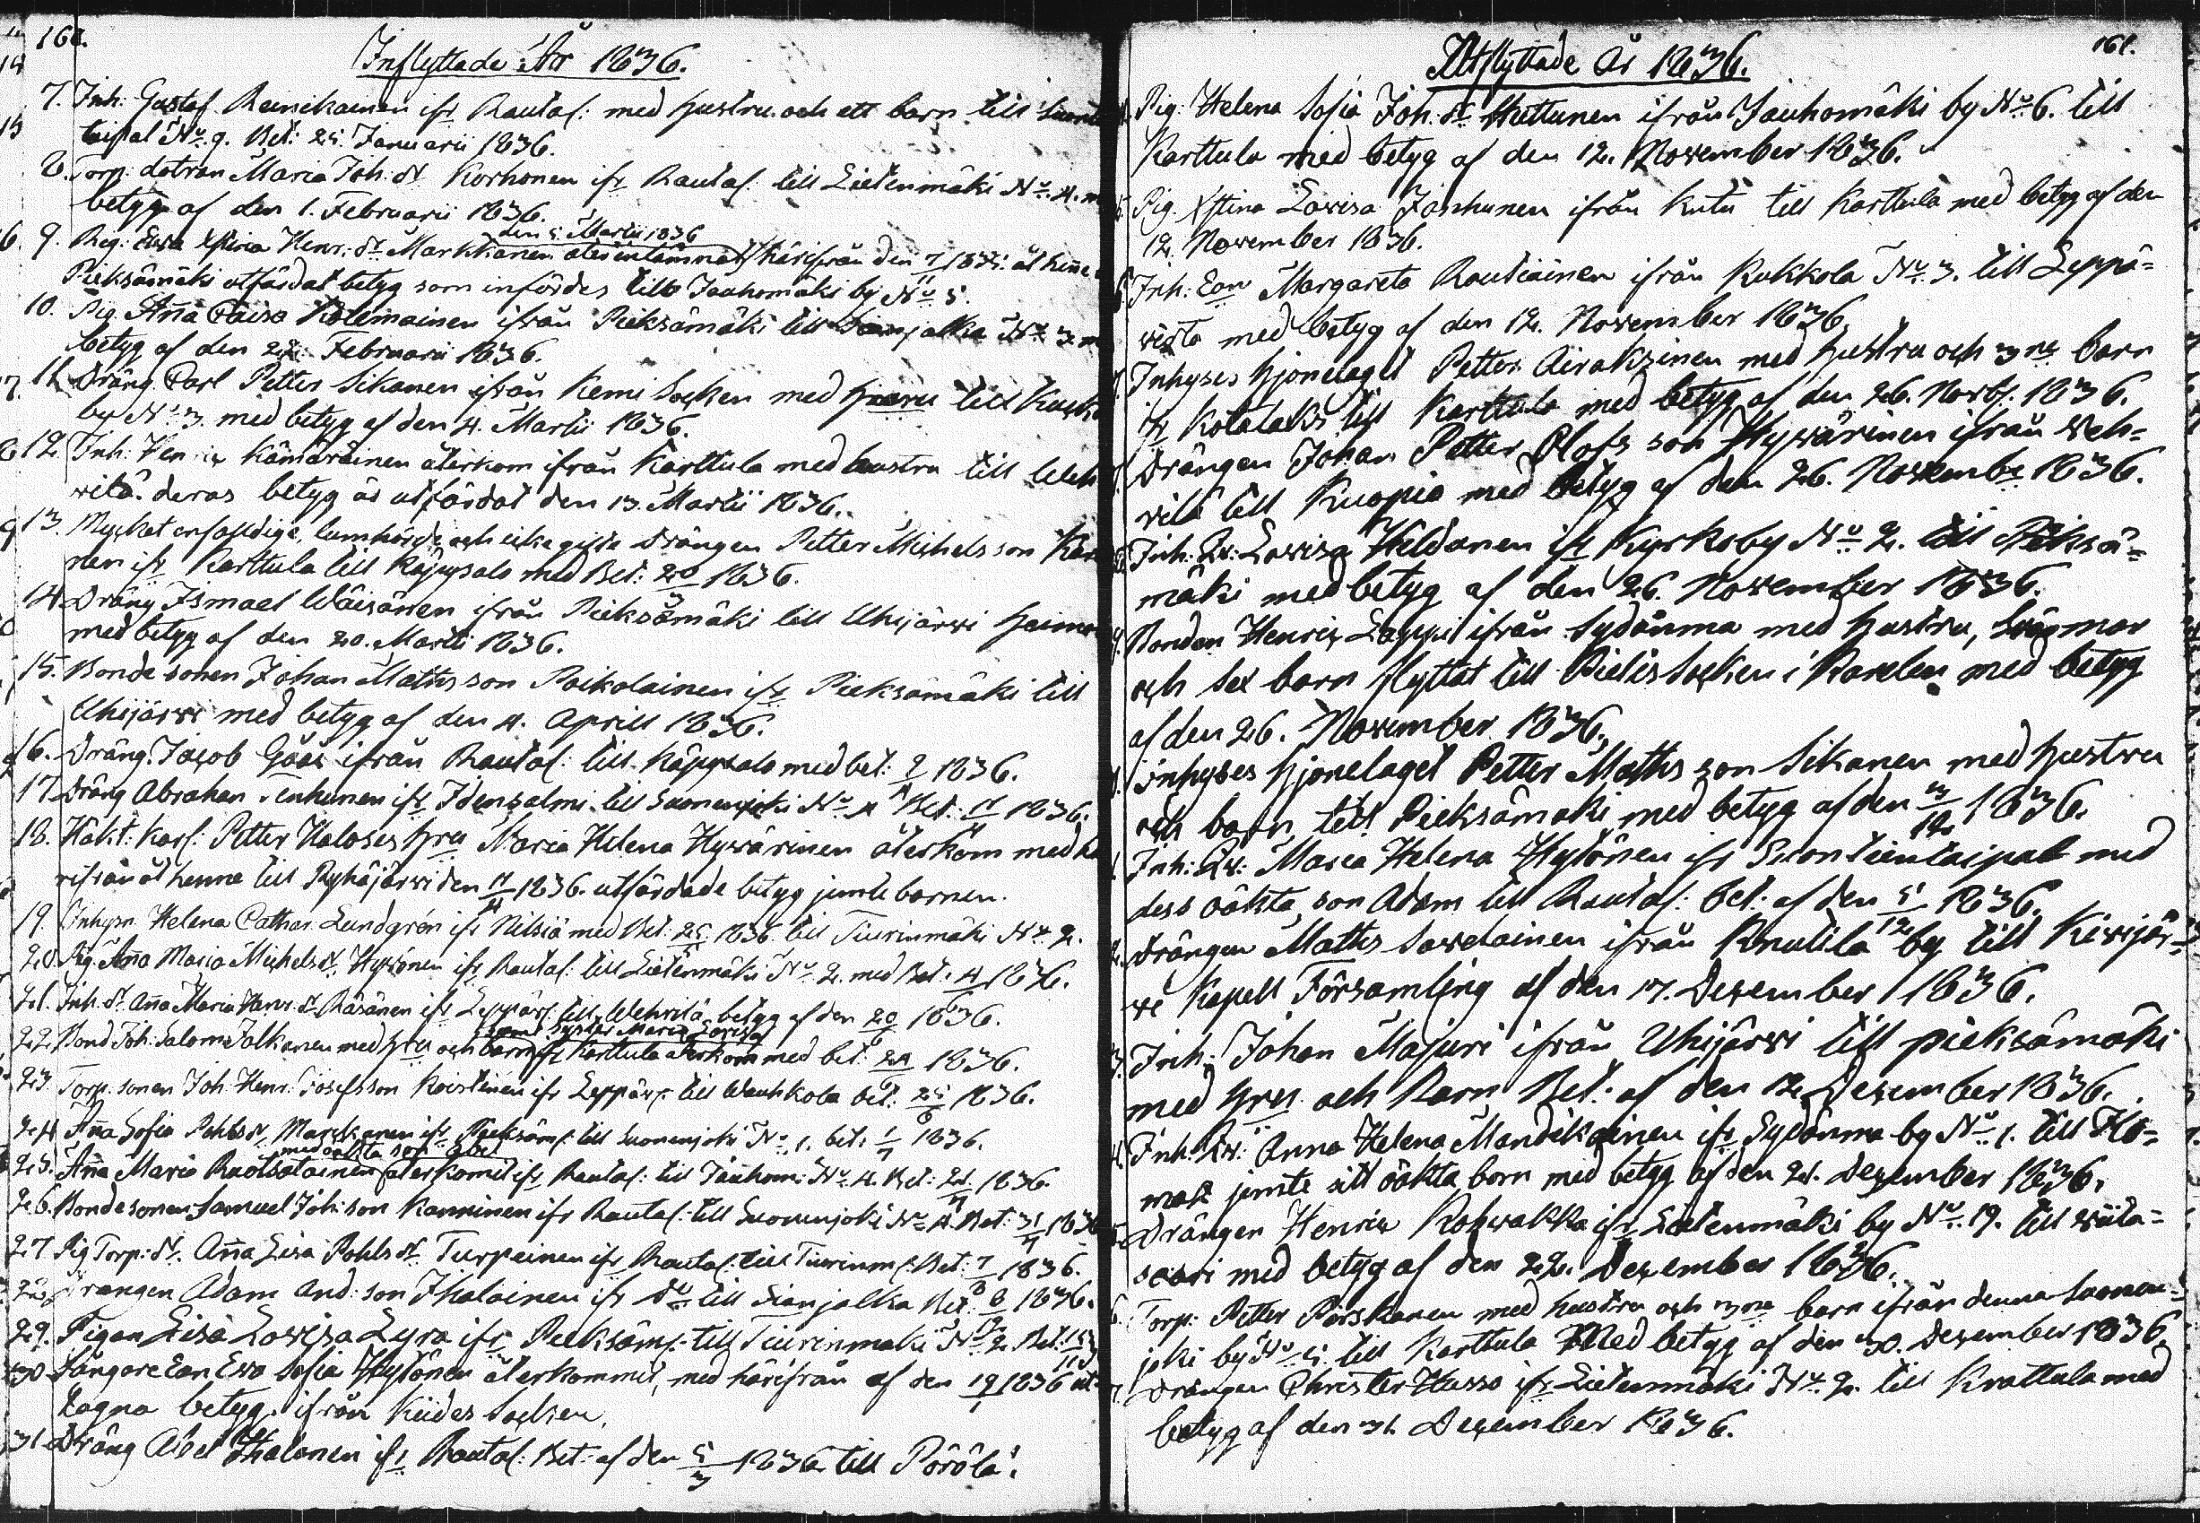 160.
Inflyttade År 1836.
7. Inh: Gustaf Reinikainen ifr Rautal: med hustru och ett barn till Suonte
taipal No 9. Bet: 25 Januarii 1836.
8. Torp: dotran Maria Joh: dr Korhonen ifr Rautal: till Lietenmäki No 4. m
betyg af den 1. Februarii 1836.
den 5 Martii 1836
9. Pig: Ewa Henr: dr Markkanen återinlämnat härifrån den åt henne
Pieksämäki utfärdat betyg som infördes till Jauhomäki by No 5.
10. Pig. Anna Caisa Kolemainen ifrån Pieksämäki till Sianjalka No 3 m
betyg af den 22. Februarii 1836.
11. Dräng Carl Petter Sikanen ifrån Kemi Socken med till
by No 3. med betyg af den 4. Martii 1836.
12. Inh: Kämäräinen återkom ifrån Karttula med hustru till Weh
wilä. deras betyg är utfärdat den 13. Martii 1836.
13. Mycket enfalldige, lumhörde och icke gifte Drängen Petter Michelsson
nen ifr Karttula till Käpysalo med Bet: 20/3 1836.
14. Dräng Ismael Wäisänen ifrån Pieksämäki till Uhijärwi
med betyg af den 20. Martii 1836.
15. Bonde sonen Johan Mathsson Poikolainen ifr Pieksämäki till
Uhijärwi med betyg af den 4. Aprill 1836.
16. Dräng Jacob Göös ifrån Rautal: till Käpysalo med bet: 9/4 1836.
17. Dräng Abraham Tenhunen ifr Idensalmi till Suonenjoki No 4 Bet: 17/4 1836.
18. Häkt: karl: Petter Haloses hru Maria Helena Hywärinen återkom med hä
rifrån åt henne till Pyhäjärwi den 17/4 1836. utfärdade betyg jemte barnen.
19. Inhysn Helena Cathar. Lundgrén ifr Nilsiä med Bet: 1836 till Tiurinmäki No 2.
20. Pig: Anna Maria Michels dr Hytönen ifr Rautal: till Lietenmäki No 2. med Bet. 4/6 1836.
21. Inh. dr Anna Maria Henr: dr Räsänen ifr Leppäw: till Wehwilä betyg af den 20/6 1836.
samt Syster Maria Lowisa
22. Bond Joh: Salom: Jalkanen med hru och barn ifr Karttula återkom med bet: 24/6 1836.
23. Torp. sonen Joh: Henr: Josefsson Koistinen ifr Leppäw: till Wauhkola bet: 25/6 1836.
24. Anna Sofia Pohls dr Markkanen ifr Pieksäm: till Suonenjoki No 1. bet: 1/7 1836.
med oäkta son Abel
25. Anna Maria Ruotsalainen återkomit ifr Rautal: till Jauhom: No 4. Bet: 1836.
26. Bondesonen Samuel Joh: son Kanninen ifr Rautal: till Suonenjoki No 4. Bet: 1836
27. Pig Torp: dr Anna Lisa Pohls dr Turpeinen ifr Rautal: till Tiurinm: Bet: 7/8 1836.
28. Drängen Adam And: son Ihalainen ifr Do till Sianjalka Bet: 1836.
29. Pigan Lisa Lowisa Lyra ifr Pieksäm: till Tiurinmäki No 2. Bet:
30. Fångare Enn Ewa Sofia Hytönen återkommit, med härifrån af den 1836 ut-
tagna betyg ifrån Kides Socken.
31. Dräng Abel Ihalanen ifr Rautal: Bet: af den 5/3 1836 till Pörölä.
161.
Utflyttade År 1836.
Pig: Helena Sofia Joh: dr Huttunen ifrån Jauhomäki by No 6. till
Karttula med betyg af den 12. November 1836.
Pig. Xstina Lovisa Jäskhunen ifrån Kutu till Karttula med betyg af den
12. November 1836.
Inh: Enn Margareta Rautiainen ifrån Kukkola No 3. till Leppä-
wirta med betyg af den 12. November 1836.
Inhyses hjonelaget Petter Airaksinen med hustru och 3ne barn
ifr Kotalaks till Karttula med betyg af den 26. Novbr. 1836.
Drängen Johan Petter Olofs son Hywärinen ifrån Weh-
wilä till Kuopio med betyg af den 26. Novembr 1836.
Inh: Qv: Lowisa Heldanen ifr Kyrkoby No 2. till Pieksä-
mäki med betyg af den 26. November 1836.
Bonden Henric Lappi ifrån Sydänma med hustru, Swärmor
och sex barn flyttat till Pielis Socken i Karelen med betyg
af den 26. November 1836.
Inhyses hjonelaget Petter Maths son Sikanen med hustru
och barn till Pieksämäki med betyg af den 3/12 1836.
Inh: Qv: Maria Helena Hytönen ifr Suontientaipal med
dess oäkta son Adam till Rautal: bet: af den 5/12 1836.
Drängen Maths Sawolainen ifrån Knutila by till Kiwijär-
wi Kapell Församling af den 17. Dezember 1836.
Inh: Johan Majuri ifrån Uhijärwi till pieksämäki
med hru och Barn Bet: af den 12 Dezember 1836.
Inh: Qv: Anna Helena Mandikainen ifr Sydänma by No 1. till
jemte sitt oäkta barn med betyg af den 21. Dezember 1836.
Drängen Henric Kohwakka ifr Lietenmäki by No 19. till wiita-
saari med betyg af den 22. Dezember 1836.
Torp: Petter Parskanen med hustru och 3ne barn ifrån denna Suonen-
joki by No 5. till Karttula Med betyg af den 30. Dezember 1836.
Drängen Christer Husso ifr Lietenmäki No 2. till Krattula med
betyg af den 31. Dezember 1836.